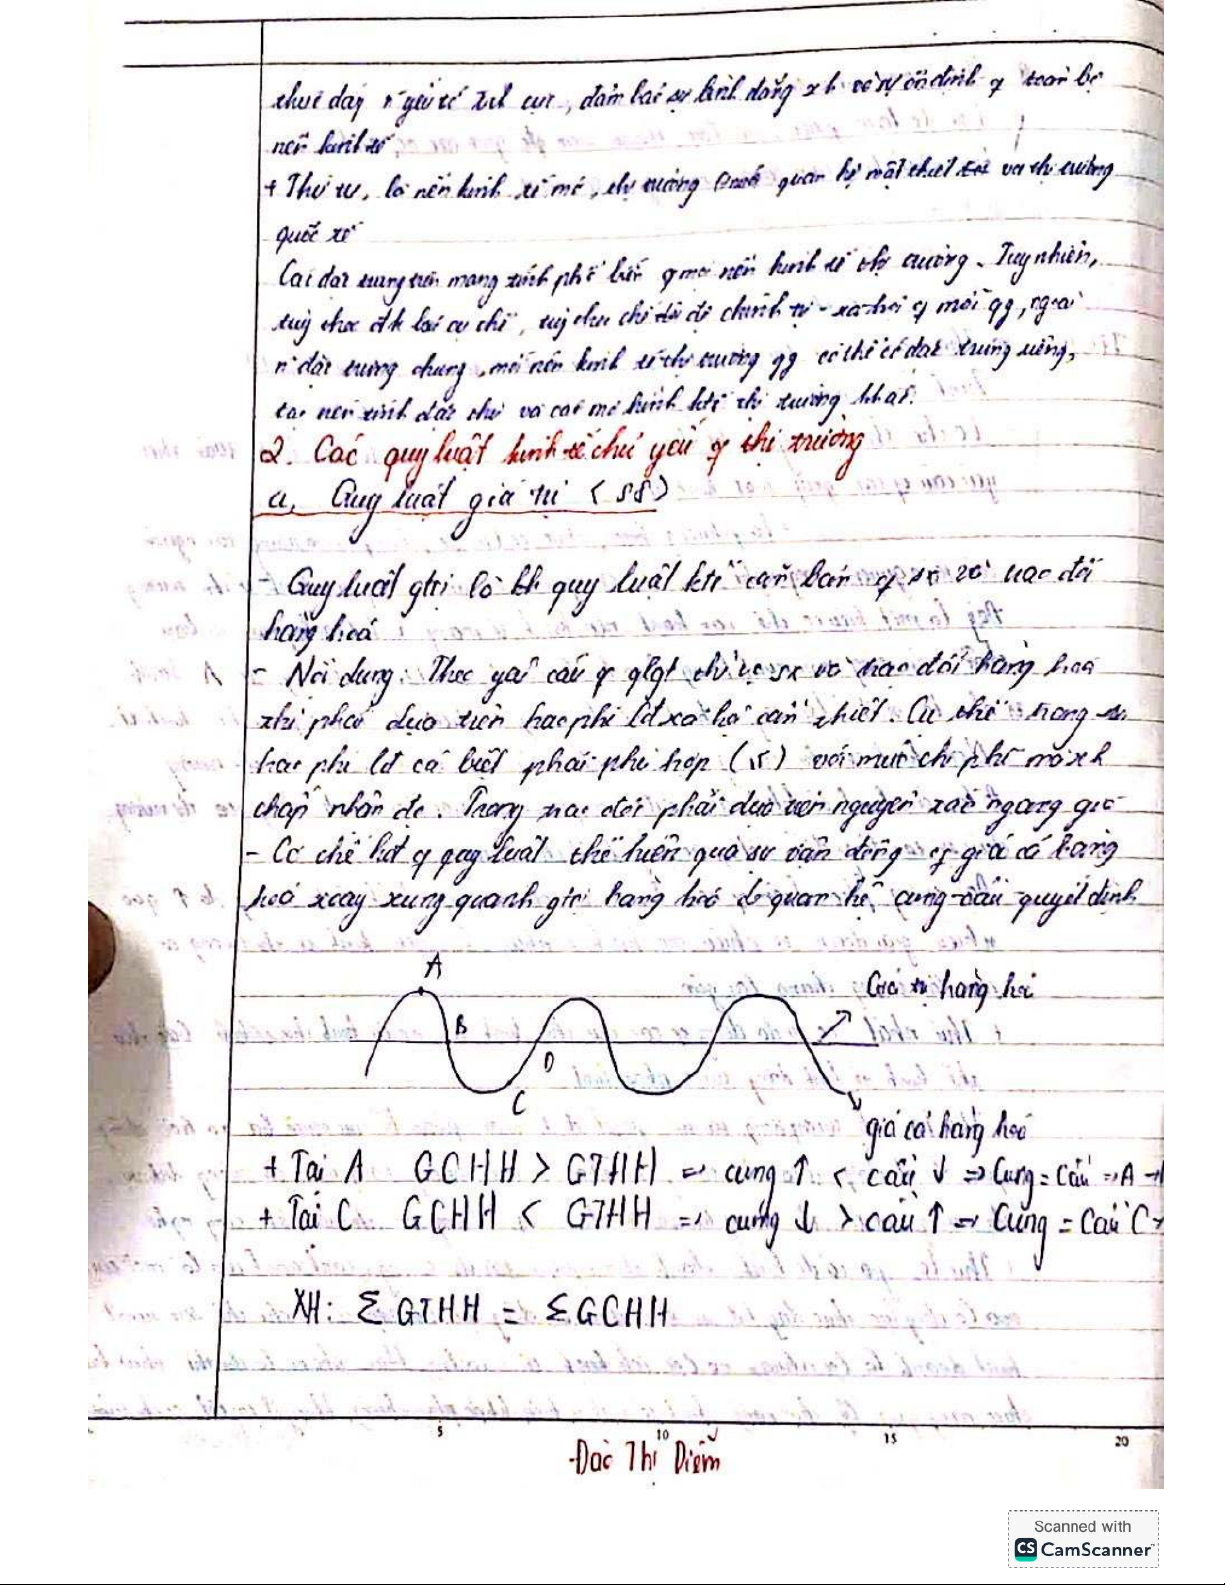 thúc đẩy n~ yếu tố tích cực, đảm bảo sự bình đẳng xh và sự ổn định of toàn bộ
nền kinh tế
+ Thứ tư, là nền kinh tế mở, thị trường quan hệ mật thiết với thị trường
quốc tế
Các đặc trưng trên mang tính phổ biến of mọi nền kinh tế thị trường. Tuy nhiên,
tuỳ theo đk lịch sử cụ thể, tuỳ theo chế độ chính trị - xã hội of mỗi qg, ngoài
n~ đặc trưng chung, mỗi nền kinh tế thị trường qg có thể có đặc trưng riêng,
tạo nên tính đặc thù và các mô hình ktế thị trường khác.
2. Các quy luật kinh tế chủ yếu of thị trường
a, Quy luật giá trị (58)
- Quy luật gtrị là quy luật ktế căn bản of sx và trao đổi
hàng hoá
- Nội dung: Theo yêu cầu of qlgt, thì sx và trao đổi hàng hoá
thì phải dựa trên hao phí lđ xã hội cần thiết. Cụ thể trong
hao phí lđ cá biệt phải phù hợp (≤) với mức chi phí mà xh
chấp nhận đc. Trong trao đổi phải dựa trên nguyên tắc ngang giá
- Cơ chế hđ of quy luật thể hiện qua sự vận động of giá cả hàng
hoá xoay xung quanh gtrị hàng hoá do quan hệ cung-cầu quyết định
A
Giá trị hàng hoá
B
D
C
giá cả hàng hoá
+ Tại A GCHH > GTHH => cung ↑ < cầu ↓ => Cung = Cầu => A →
+ Tại C GCHH < GTHH => cung ↓ > cầu ↑ => Cung = Cầu C →
XH: Σ GTHH = Σ GCHH
5 10 15 20
Đào Thị Diễm
Scanned with
CS CamScanner